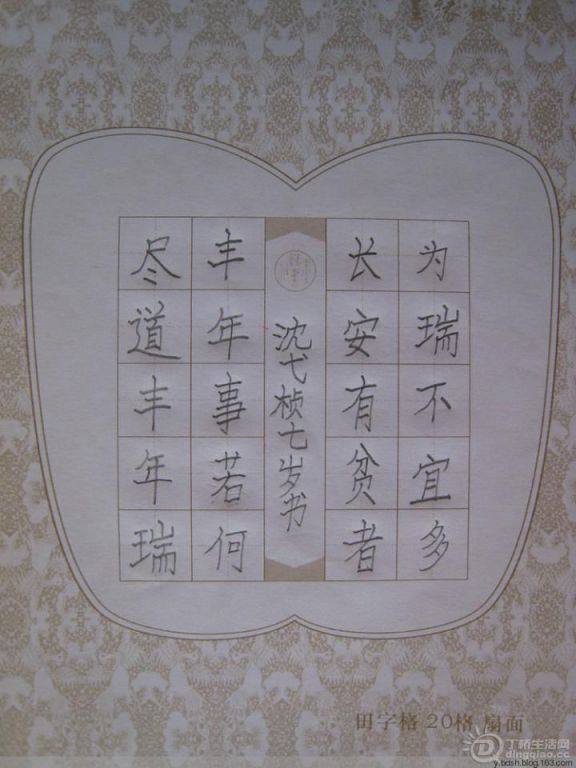 尽道丰年瑞
丰年事若何
沈弋桢七岁书
长安有贫者
为瑞不宜多
田字格 20格 扇面
丁桥生活网
dingqiao.cc
y.bdsh.blog.163.com